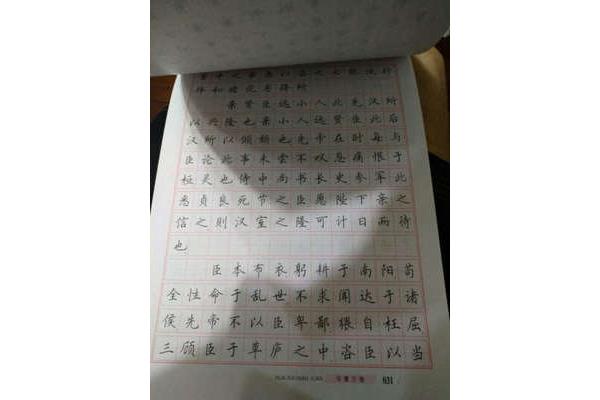 营中之事悉以咨之必能使行
阵和睦优劣得所
亲贤臣远小人此先汉所
以兴隆也亲小人远贤臣此后
汉所以倾颓也先帝在时每与
臣论此事未尝不叹息痛恨于
桓灵也侍中尚书长史参军此
悉贞良死节之臣愿陛下亲之
信之則汉室之隆可计日而待
也
臣本布衣躬耕于南阳苟
全性命于乱世不求闻达于诸
侯先帝不以臣卑鄙猥自枉屈
三顾臣于草庐之中咨臣以当
031